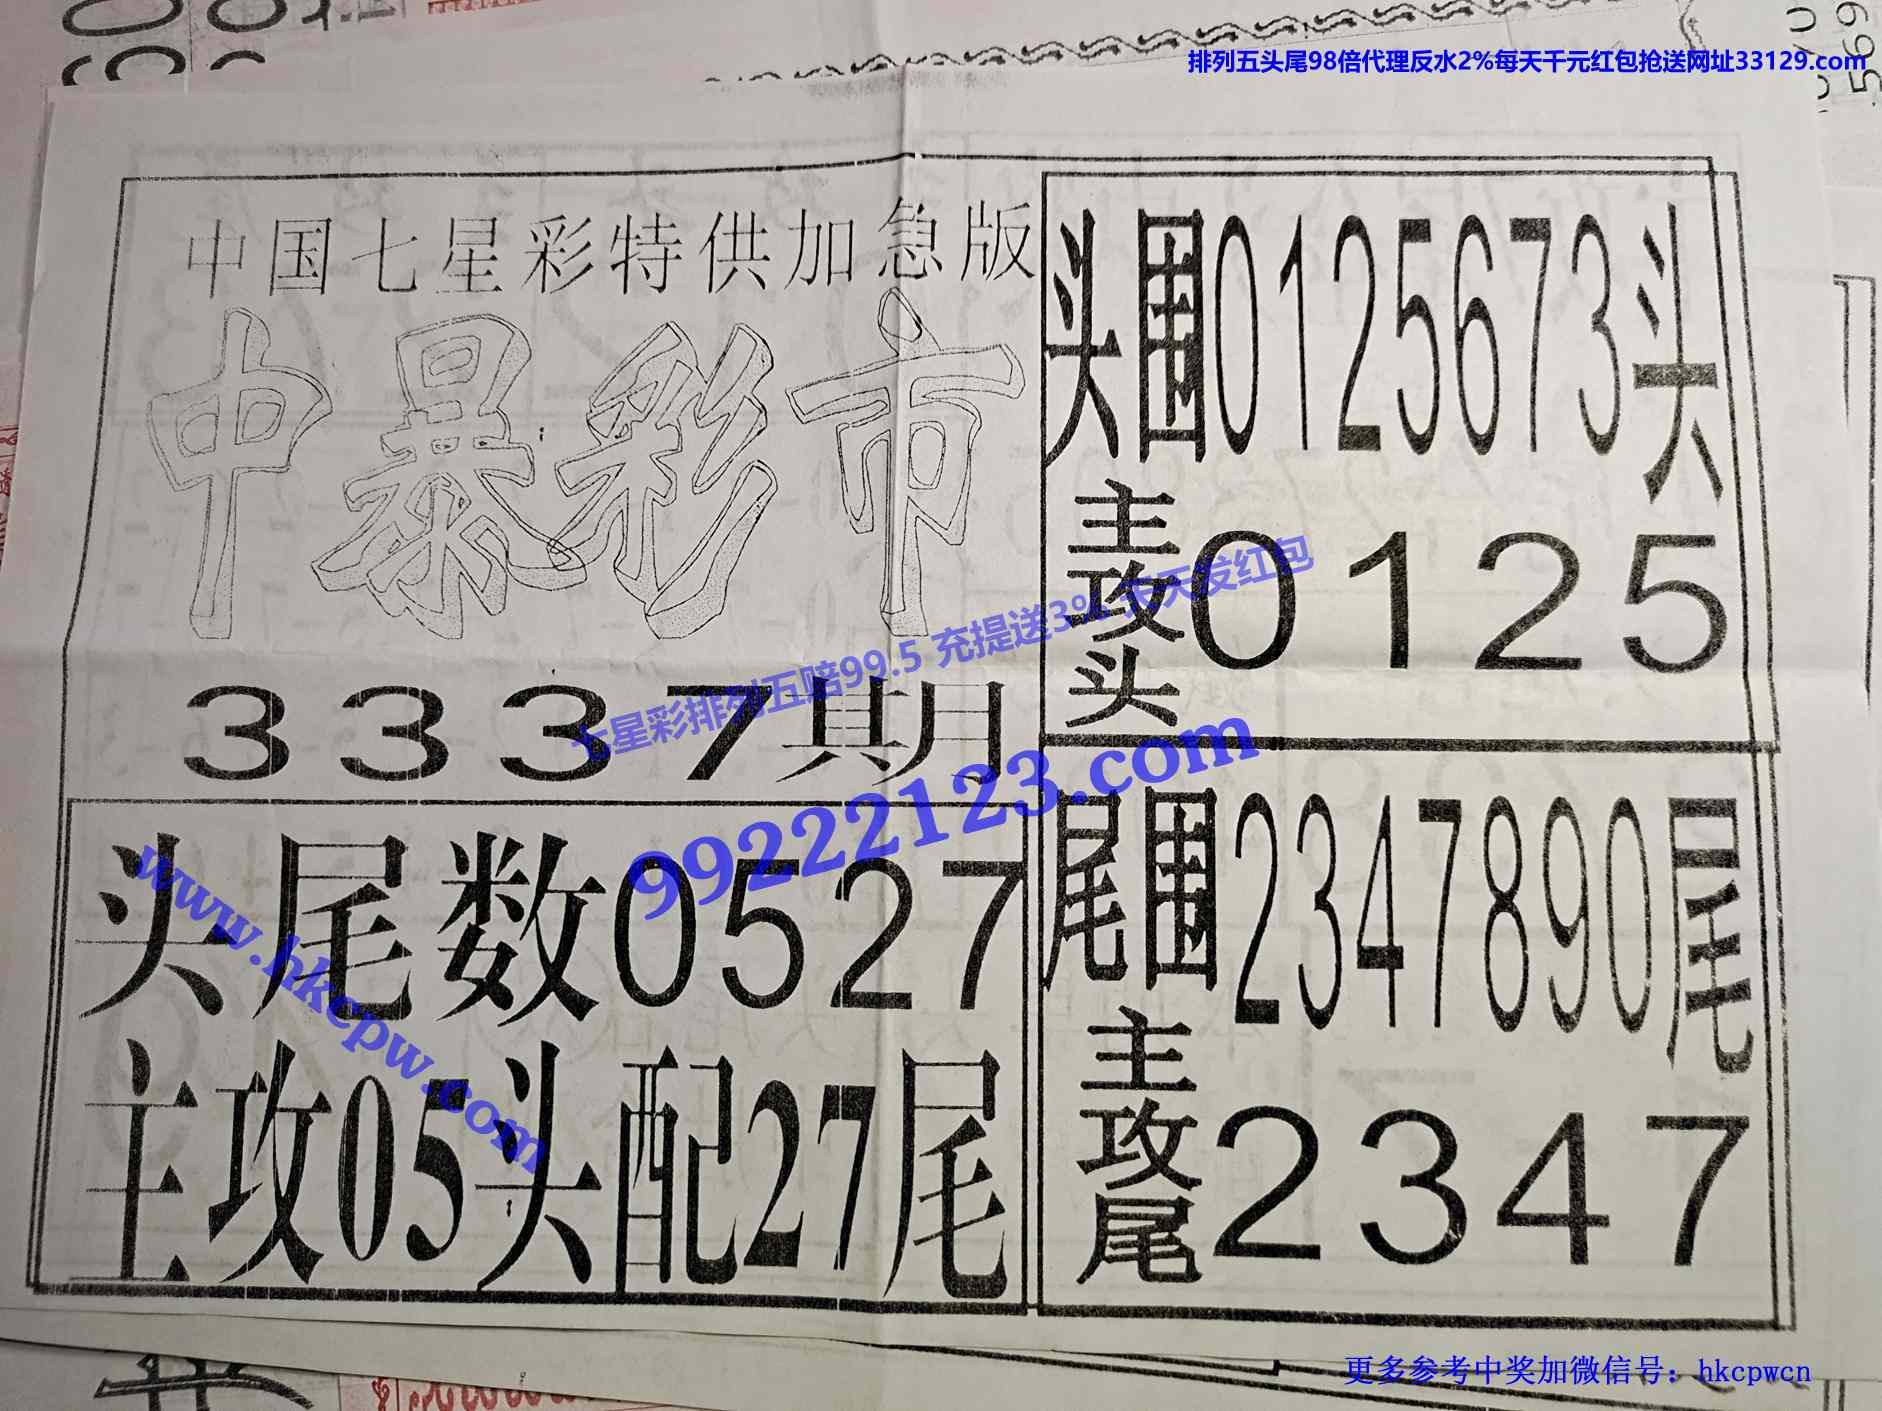 排列五头尾98倍代理反水2%每天千元红包抢送网址33129.com
569
中国七星彩特供加急版
中暴彩市
3337期
头尾数0527
主攻05头配27尾
头围0125673头
主攻头0125
尾围2347890尾
主攻尾2347
七星彩排列五赔99.5 充提送3% 天天发红包
99222123.com
www.hkcpw.com
更多参考中奖加微信号：hkcpwcn